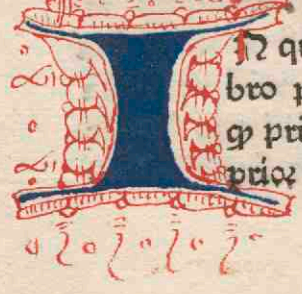 IN qu
bro p
ꝙ pri
prioꝛ